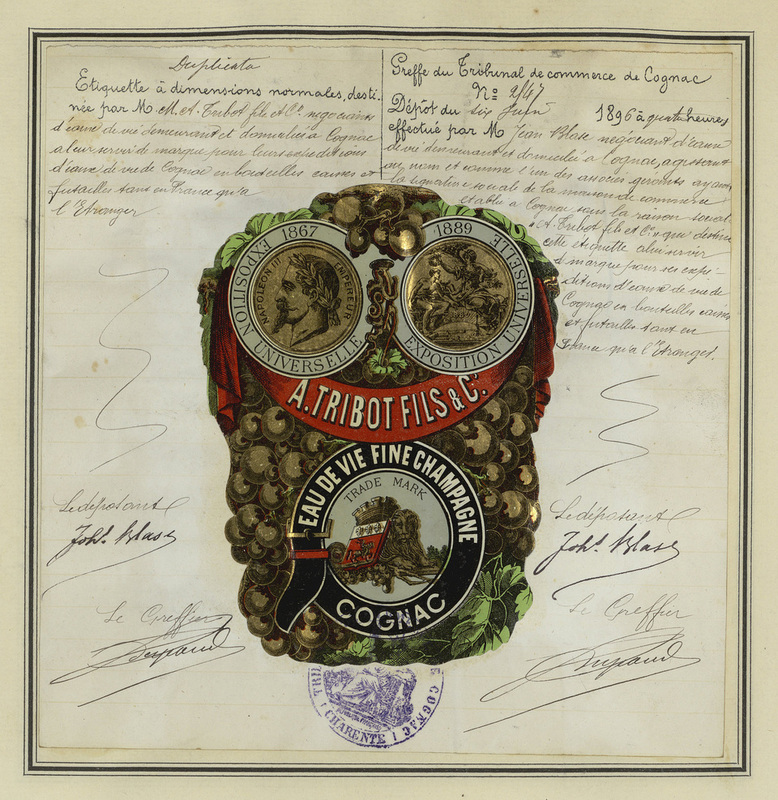 Duplicata
Etiquette à dimensions normales, desti-
née par M. M. A. Tribot fils et Cie négociants
d'eau de vie demeurant et domiciliés à Cognac
a leur servir de marque pour leurs expéditions
d'eaux de vie de Cognac en bouteilles caisses et
futailles tant en France qu'a
l'Etranger
Greffe du Tribunal de commerce de Cognac
No 2147
Dépôt du six Juin 1896 à quatre heures
effectué par M Jean Blase négociant d'eaux
de vie demeurant et domicilié a Cognac, agissant
au nom et comme l'un des associés gérants ayant
la signature sociale de la maison de commerce
établie à Cognac sous la raison sociale
A Tribot fils et Cie que destine
cette etiquette a leur servir
de marque pour ses expé-
ditions d'eaux de vie de
Cognac en bouteilles caisses
et futailles tant en
France qu'a l'Etranger.
EXPOSITION UNIVERSELLE 1867
NAPOLEON III EMPEREUR
EXPOSITION UNIVERSELLE 1889
A. TRIBOT FILS & Co.
EAU DE VIE FINE CHAMPAGNE
TRADE MARK
COGNAC
Le déposant
Joht. Blase
Le Greffier
Le déposant
Joht. Blase
Le Greffier
COGNAC
CHARENTE